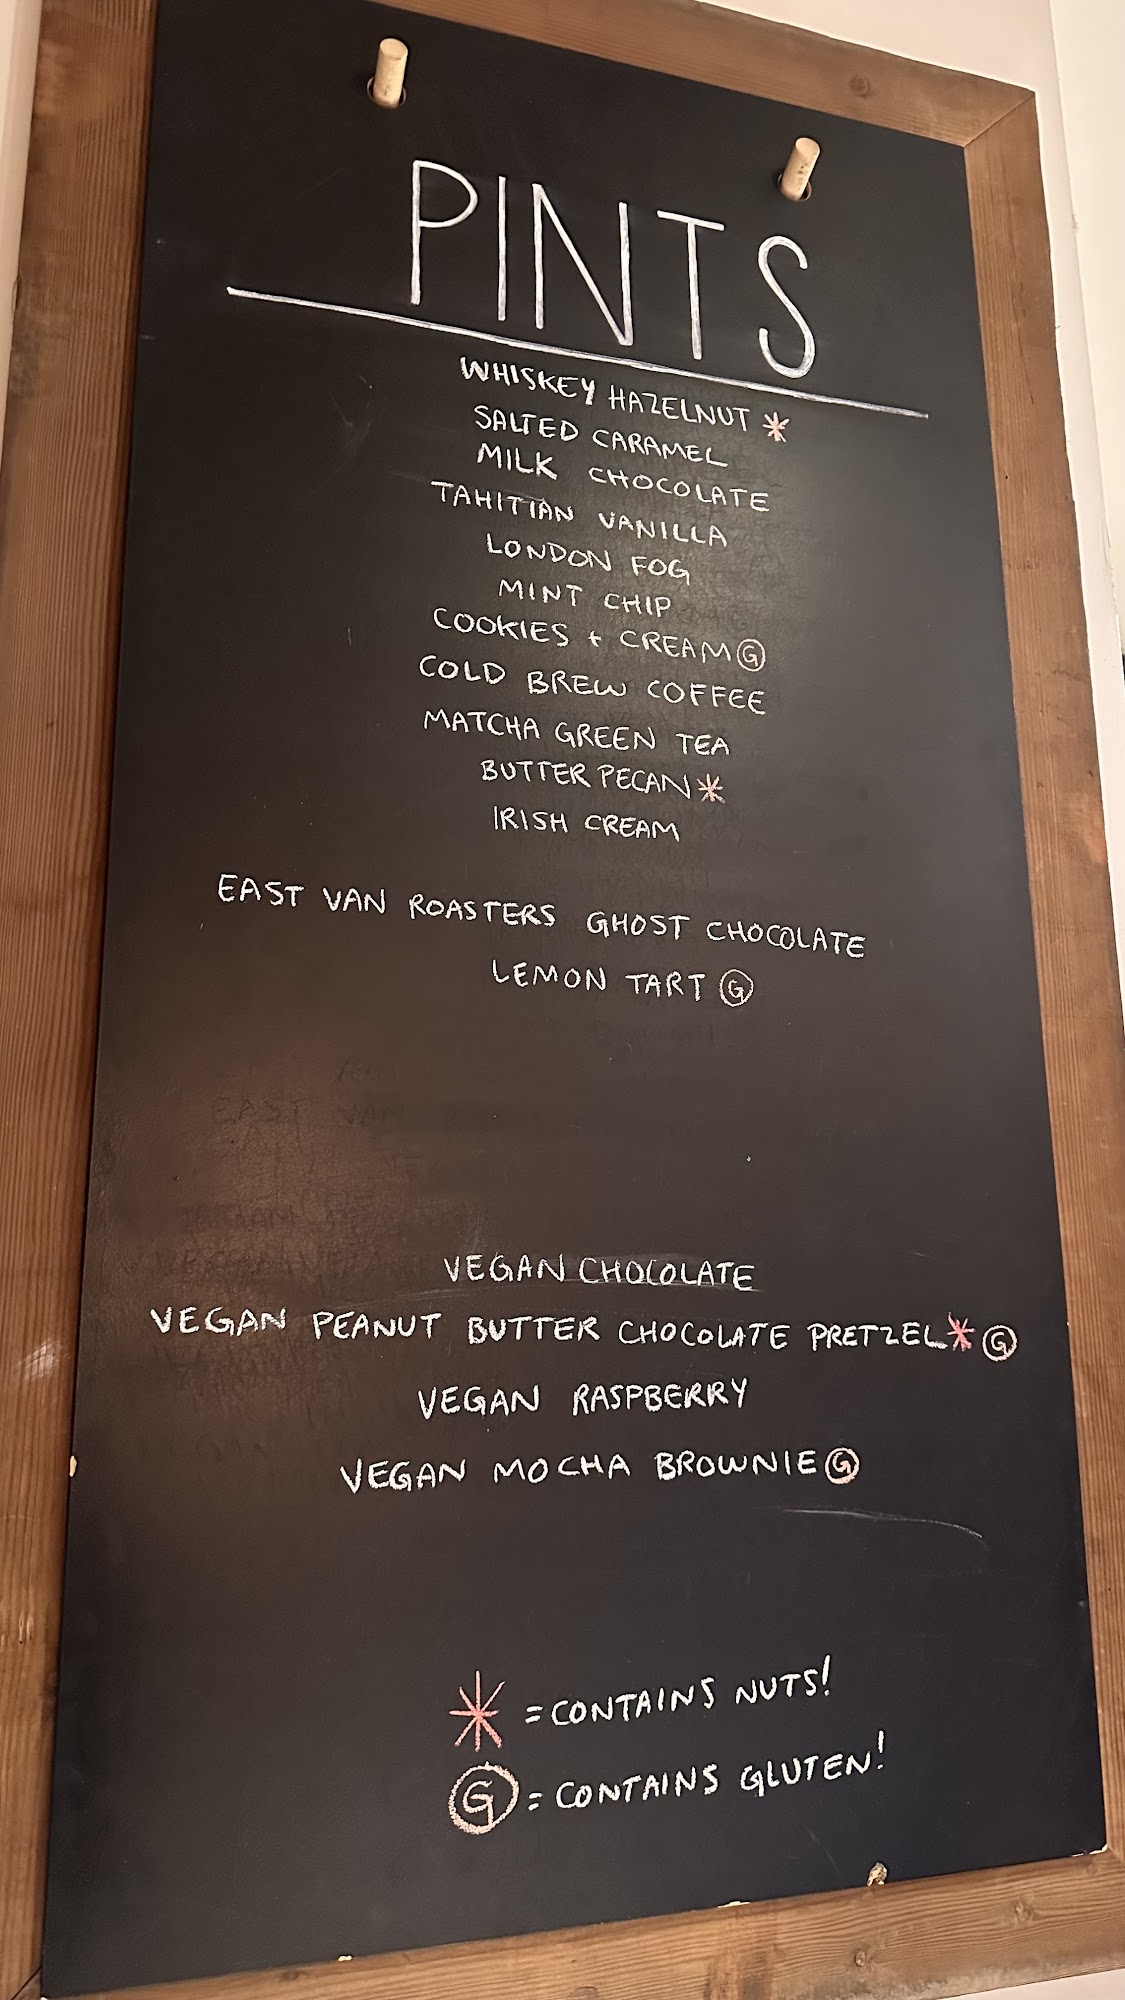 PINTS
WHISKEY HAZELNUT *
SALTED CARAMEL
MILK CHOCOLATE
TAHITIAN VANILLA
LONDON FOG
MINT CHIP
COOKIES + CREAM Ⓖ
COLD BREW COFFEE
MATCHA GREEN TEA
BUTTER PECAN *
IRISH CREAM
EAST VAN ROASTERS GHOST CHOCOLATE
LEMON TART Ⓖ
VEGAN CHOCOLATE
VEGAN PEANUT BUTTER CHOCOLATE PRETZEL * Ⓖ
VEGAN RASPBERRY
VEGAN MOCHA BROWNIE Ⓖ
* = CONTAINS NUTS!
Ⓖ = CONTAINS GLUTEN!